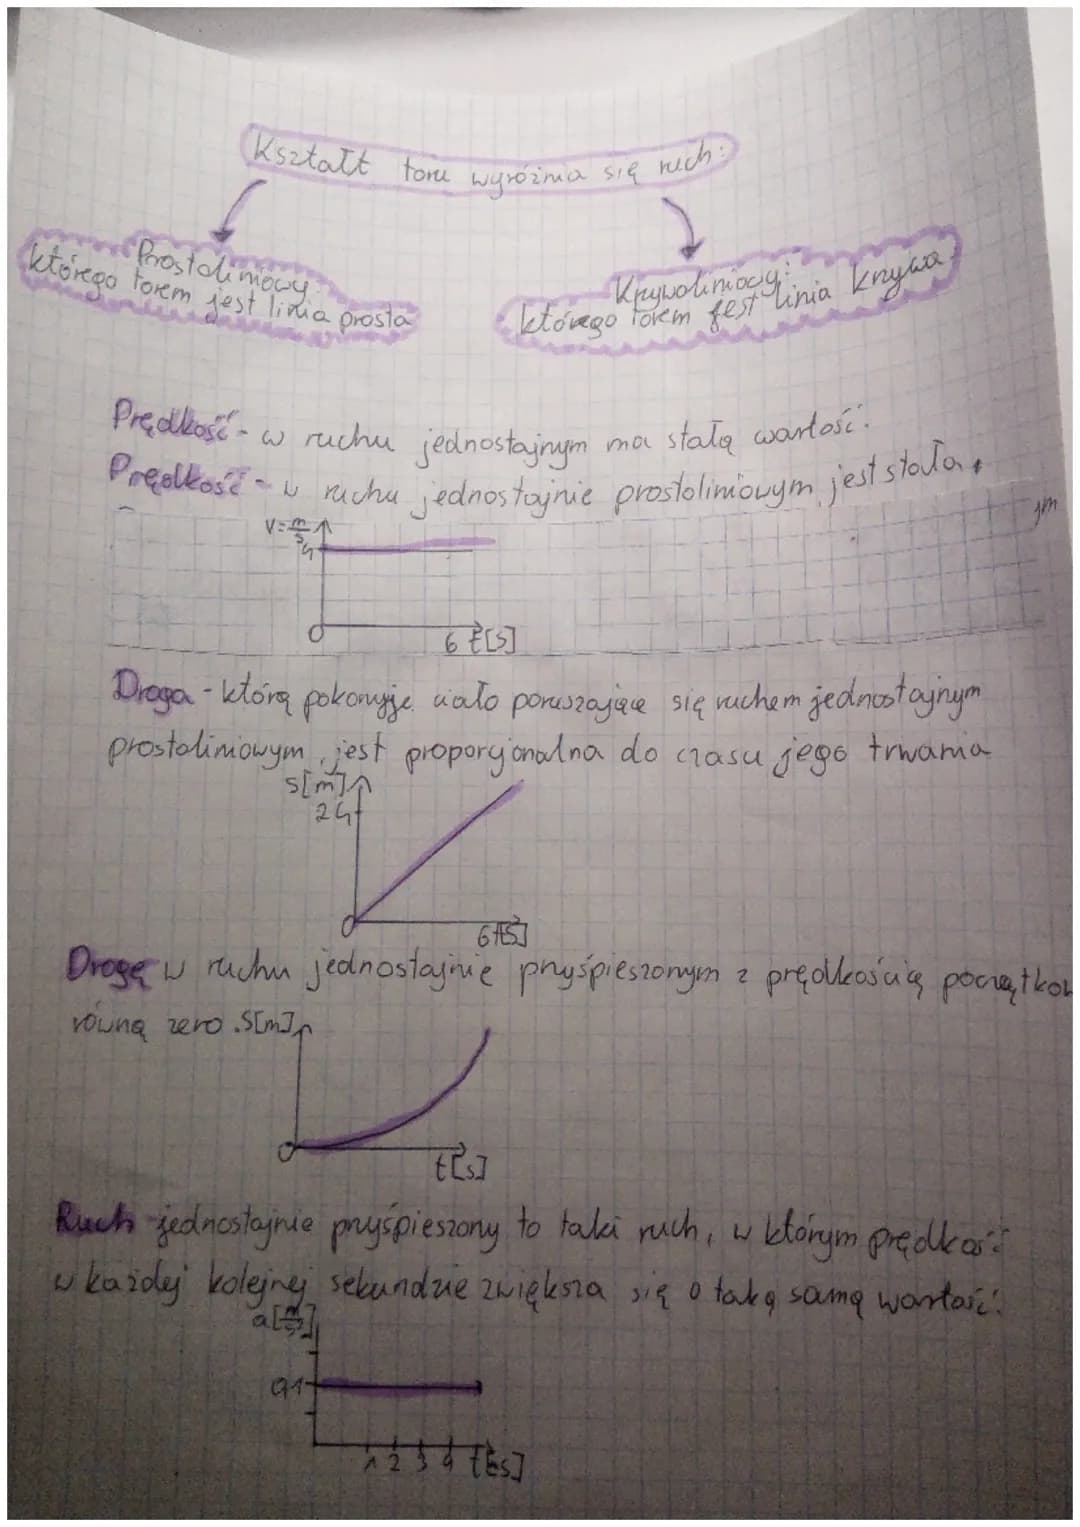 Kształt toru wyróżnia się ruch:
Prostoliniowy
którego torem jest linia prosta
Krzywoliniowy:
którego torem jest linia krzywa.
Prędkość - w ruchu jednostajnym ma stałą wartość.
Prędkość - w ruchu jednostajnie prostoliniowym jest stała.
ym
V=m/s
4
0
6 t[s]
Droga - którą pokonuje ciało poruszające się ruchem jednostajnym
prostoliniowym, jest proporcjonalna do czasu jego trwania
S[m]
24
0
6 t[s]
Drogę w ruchu jednostajnie przyśpieszonym z prędkością początkow
równą zero. S[m]
0
t[s]
Ruch jednostajnie przyśpieszony to taki ruch, w którym prędkość
w każdej kolejnej sekundzie zwiększa się o taką samą wartość.
a[m/s²]
0,1
1 2 3 4 t[s]